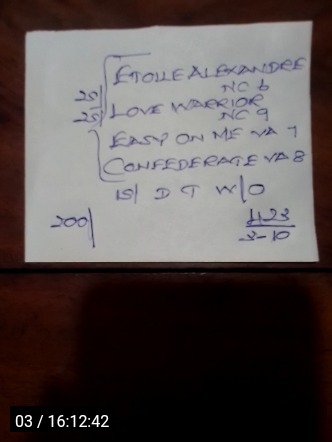 ETOILE ALEXANDRE
25/ NC 6
25/ LOVE WARRIOR
NC 9
EASY ON ME VA 7
CONFEDERATE VA 8
15/ D T W/O
200/ 423
3-10
03 / 16:12:42